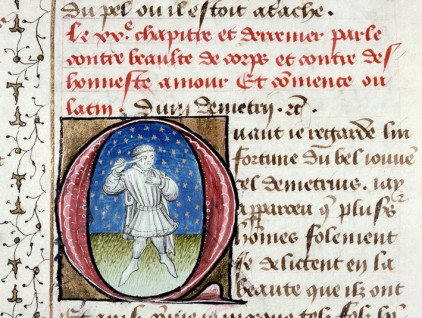 du pel ou il estoit atache.
Le xxe chapitre et derrenier parle
contre beaulte de corps et contre des
honneste amour Et comence ou
latin. Dum demetrij. Rc.
Quant ie regarde lin
fortune du bel iouuen
cel demetrius. iay
apparceu q̄ plusrs
homes folement
se delictent en la
beaute que ilz ont